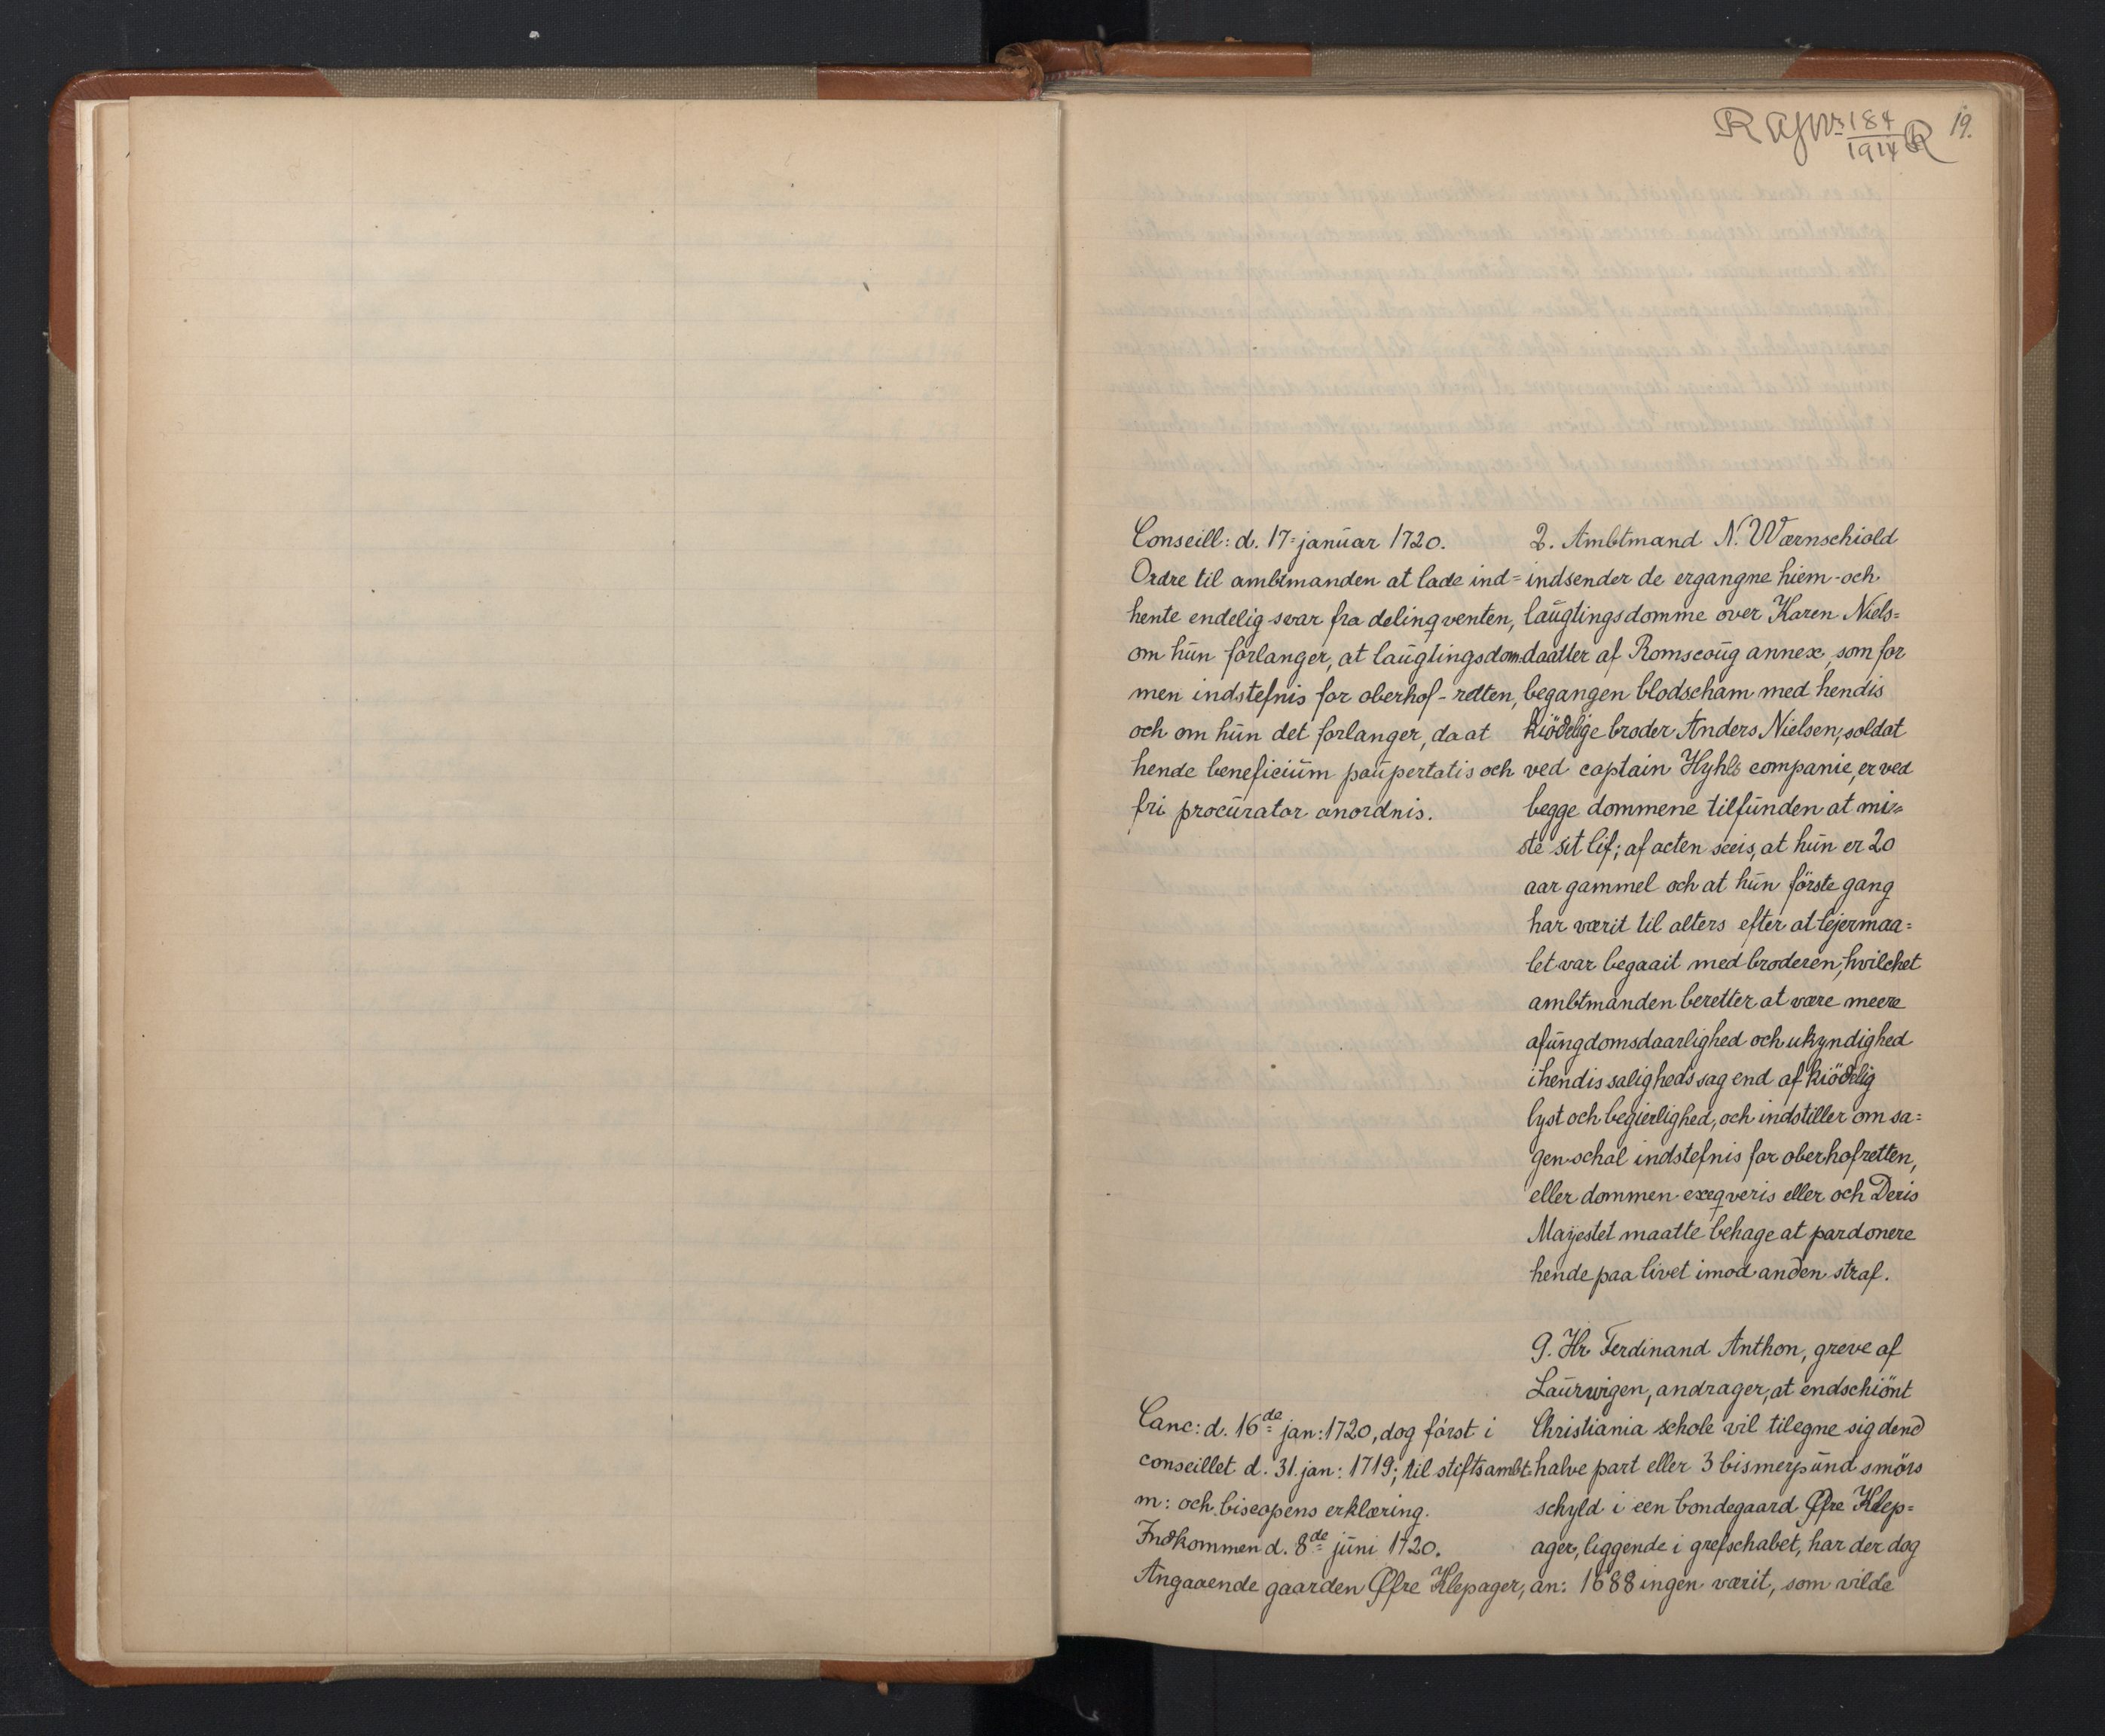 19.
184
1914
Conseill: d. 17 januar 1720.
Ordre til ambtmanden at lade ind=
hente endelig svar fra delinqventen,
om hun forlanger, at laugtingsdom-
men indstefnis for oberhof-retten,
och om hun det forlanger, da at
hende beneficium paupertatis och
fri procurator anordnis.
2. Ambtmand N. Wærnschiold
indsender de ergangne hiem- och
laugtingsdomme over Karen Niels=
daatter af Romscoug annex, som for
begangen blodscham med hendis
kiödelige broder Anders Nielsen, soldat
ved captain Hyhls companie, er ved
begge dommene tilfunden at mi=
ste sit lif; af acten seeis, at hun er 20
aar gammel och at hun förste gang
har værit til alters efter at lejermaa=
let var begaait med broderen, hvilchet
ambtmanden beretter at være meere
af ungdomsdaarlighed och ukyndighed
i hendis saligheds sag end af kiödelig
lyst och begierlighed, och indstiller om sa=
gen schal indstefnis for oberhofretten,
eller dommen exeqveris eller och Deris
Mayestet maatte behage at pardonere
hende paa livet imod anden straf.
Canc: d. 16de jan: 1720, dog först i
conseillet d. 31. jan: 1719; til stiftsambt-
m: och biscopens erklæring.
Indkommen d. 8de juni 1720.
Angaaende gaarden Øfre Klepager,
9. Hr. Ferdinand Anthon, greve af
Laurwigen, andrager, at endschiönt
Christiania schole vil tilegne sig dend
halve part eller 3 bismerpund smörs
schyld i een bondegaard Øfre Klep=
ager, liggende i grefschabet, har der dog
an: 1688 ingen værit, som vilde